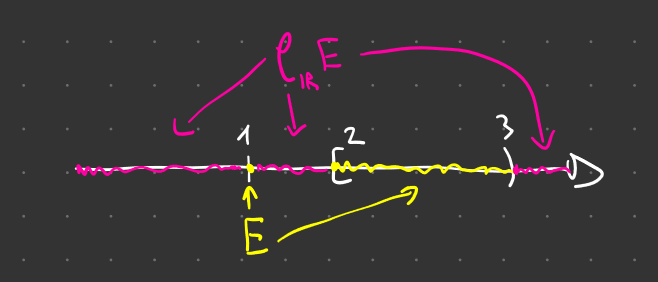 ∁ℝE
1 [ 2 3 )
E